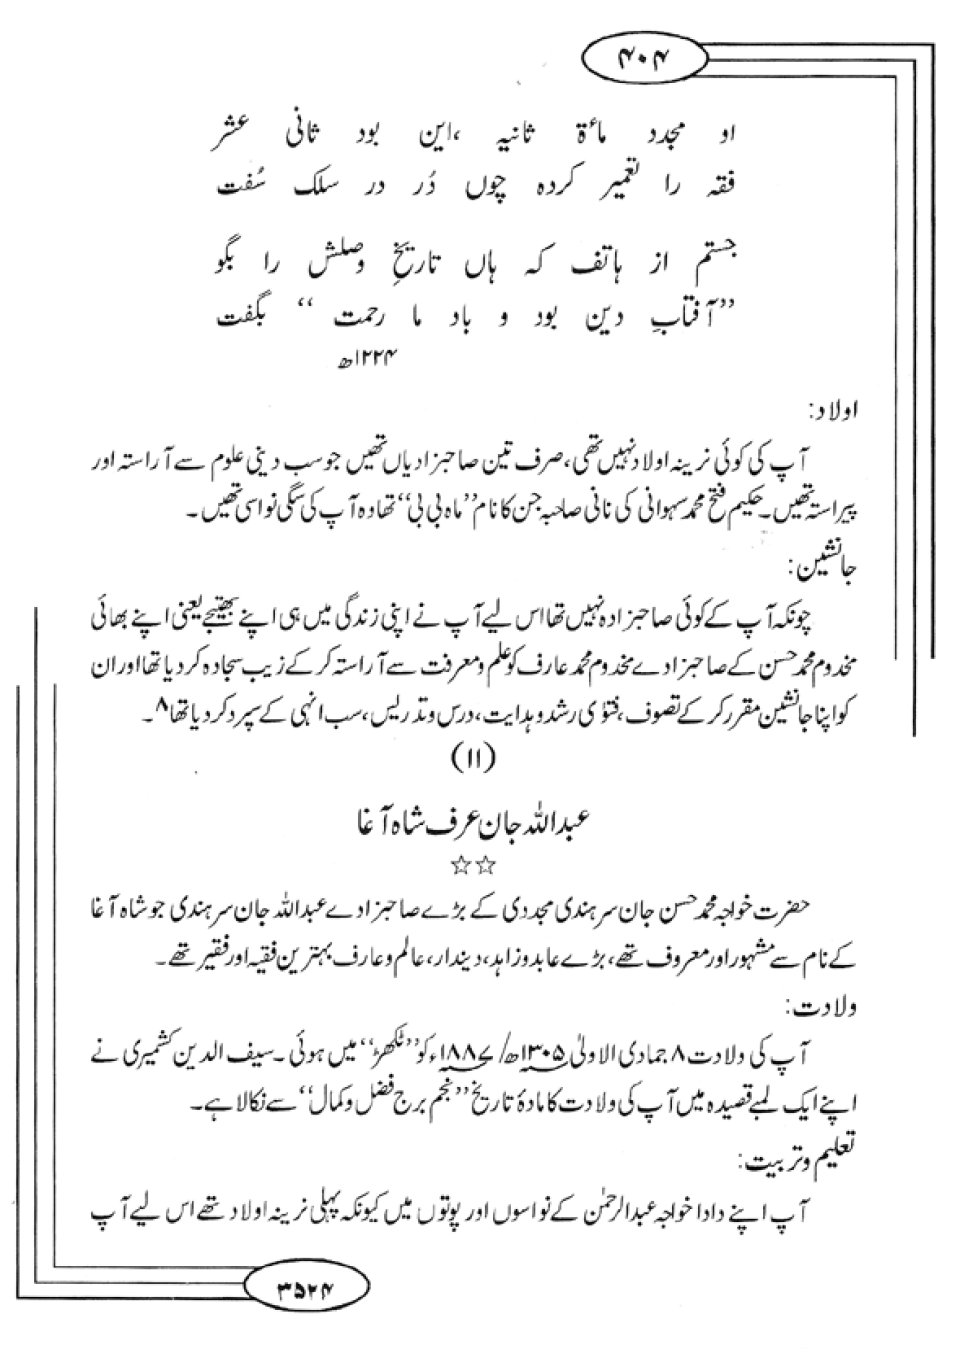 ۴۰۴
او مجدد مأۃ ثانیہ ،این بود ثانی عشر
فقہ را تعمیر کردہ چوں دُر در سلک سُفت
جستم از ہاتف کہ ہاں تاریخِ وصلش را بگو
”آفتابِ دین بود و باد ما رحمت“ بگفت
۱۲۲۴ھ
اولاد:
آپ کی کوئی نرینہ اولاد نہیں تھی، صرف تین صاحبزادیاں تھیں جو سب دینی علوم سے آراستہ اور
پیراستہ تھیں۔ حکیم فتح محمد سہوانی کی نانی صاحبہ جن کا نام ”ماہ بی بی“ تھا وہ آپ کی سگی نواسی تھیں۔
جانشین:
چونکہ آپ کے کوئی صاحبزادہ نہیں تھا اس لیے آپ نے اپنی زندگی میں ہی اپنے بھتیجے یعنی اپنے بھائی
مخدوم محمد حسن کے صاحبزادے مخدوم محمد عارف کو علم و معرفت سے آراستہ کر کے زیب سجادہ کر دیا تھا اور ان
کو اپنا جانشین مقرر کر کے تصوف، فتؤی رشد و ہدایت، درس و تدریس، سب انہی کے سپرد کر دیا تھا ۸۔
(۱۱)
عبداللہ جان عرف شاہ آغا
☆☆
حضرت خواجہ محمد حسن جان سرہندی مجددی کے بڑے صاحبزادے عبداللہ جان سرہندی جو شاہ آغا
کے نام سے مشہور اور معروف تھے، بڑے عابد و زاہد، دیندار، عالم و عارف بہترین فقیہ اور فقیر تھے۔
ولادت:
آپ کی ولادت ۸ جمادی الاولیٰ ۱۳۰۵ھ/ ۱۸۸۷ء کو ”ٹکھڑ“ میں ہوئی۔ سیف الدین کشمیری نے
اپنے ایک لمبے قصیدہ میں آپ کی ولادت کا مادۂ تاریخ ”نجم برج فضل و کمال“ سے نکالا ہے۔
تعلیم و تربیت:
آپ اپنے دادا خواجہ عبدالرحمٰن کے نواسوں اور پوتوں میں کیونکہ پہلی نرینہ اولاد تھے اس لیے آپ
۳۵۲۴